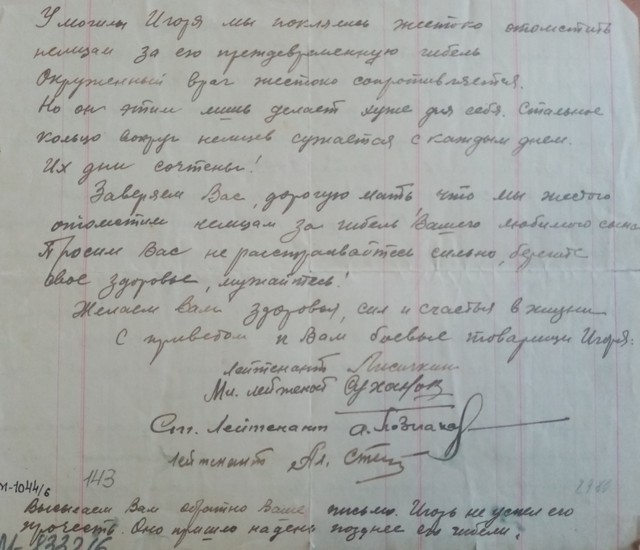 У могилы Игоря мы поклялись жестоко отомстить
немцам за его преждевременную гибель
Окруженный враг жестоко сопротивляется.
Но он этим лишь делает хуже для себя. Стальное
кольцо вокруг немцев сужается с каждым днем.
Их дни сочтены!
Заверяем Вас, дорогую мать, что мы жестого
отомстим немцам за гибель Вашего любимого сына.
Просим Вас не расстраивайтесь сильно, берегите
свое здоровье, мужайтесь!
Желаем вам здоровья, сил и счастья в жизни
С приветом к Вам боевые товарищи Игоря:
Лейтенант Лисичкин
Мл. лейтенант Суханов
Ст. Лейтенант А. Позняков
Лейтенант Ал.
143
М-1044/6
Высылаем Вам обратно Ваше письмо. Игорь не успел его
прочесть. Оно пришло на день позднее его гибели.